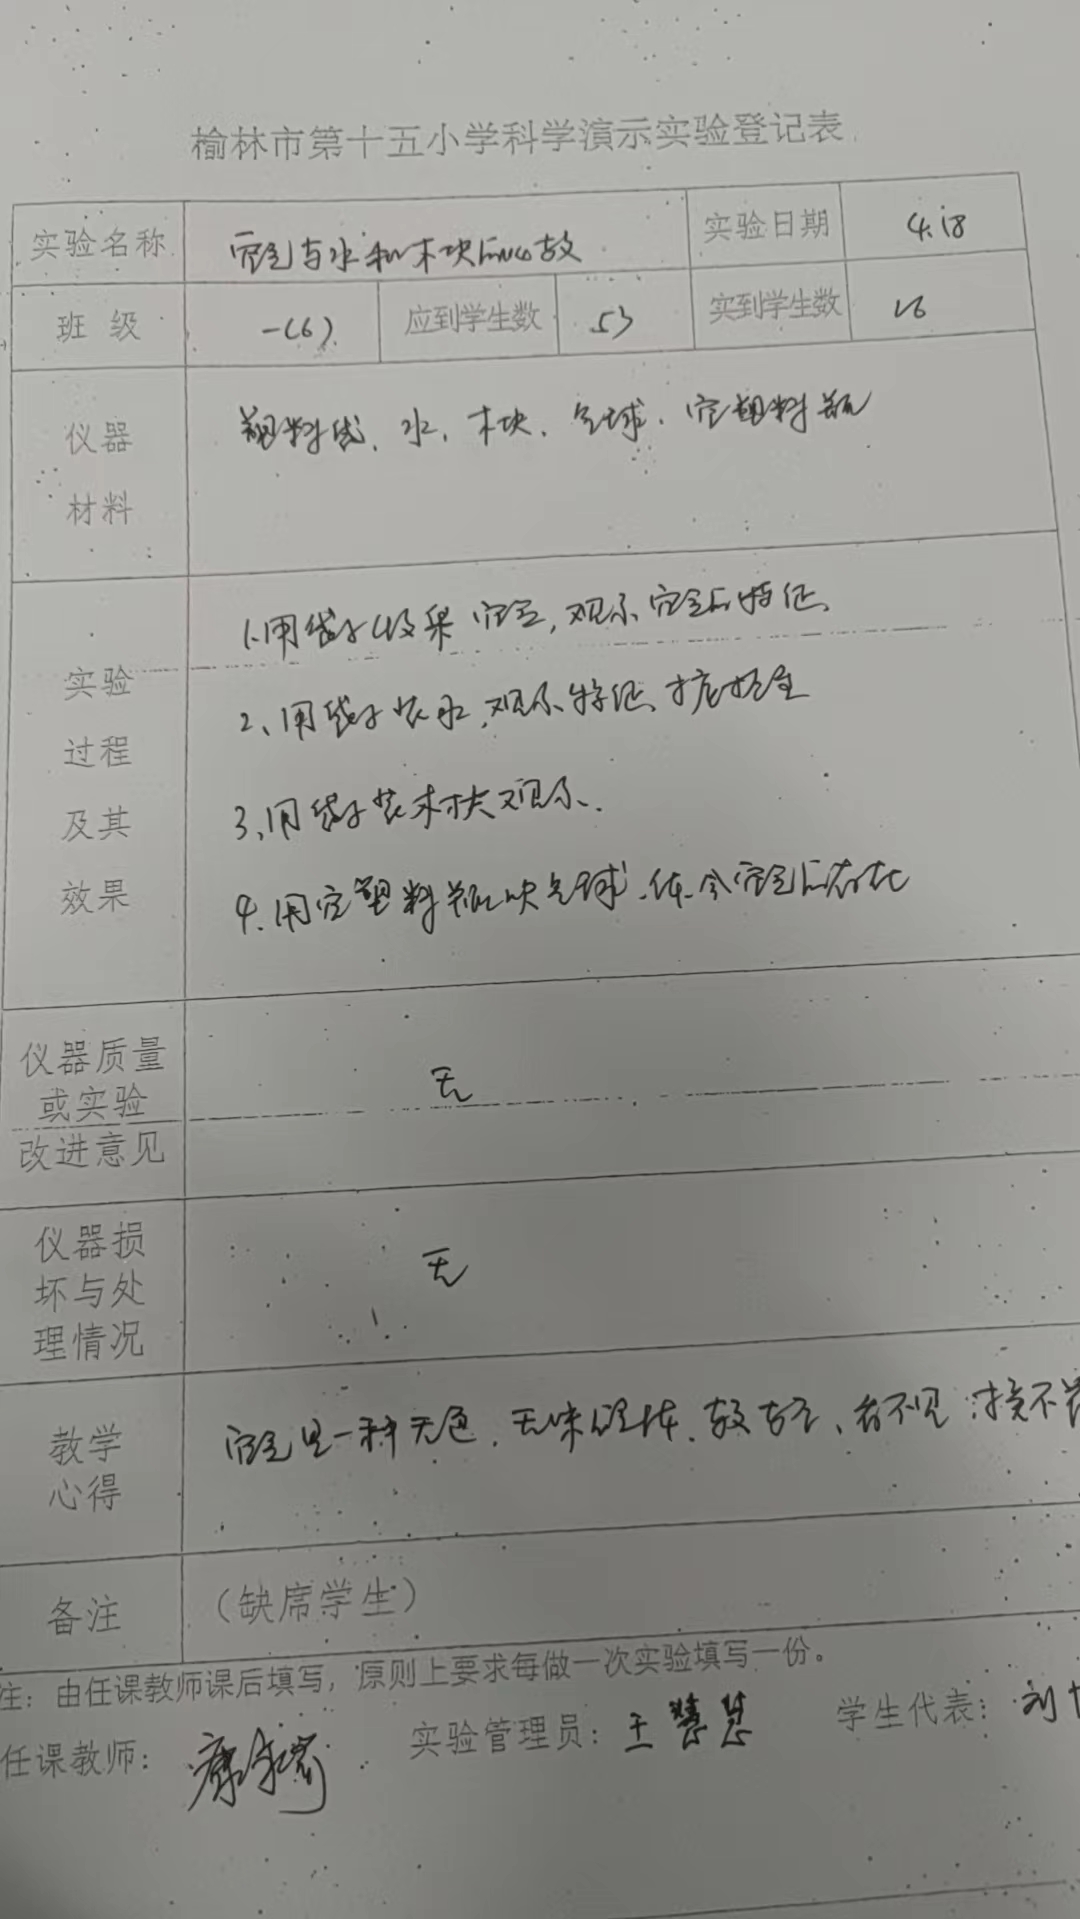 榆林市第十五小学科学演示实验登记表
实验名称 空气与水和木块 实验日期 4.18
班 级 一(6) 应到学生数 53 实到学生数
仪器
材料
塑料袋、水、木块、气球、空塑料瓶
实验
过程
及其
效果
1、用袋子收集空气，观察空气的特征、
2、用袋子装水，观察特征、
3、用袋子装木块观察.
4、用空塑料瓶吹气球、体会空气的存在
仪器质量
或实验
改进意见
无
仪器损
坏与处
理情况
无
教学
心得
空气是一种无色、无味 看不见
备注 （缺席学生）
注：由任课教师课后填写，原则上要求每做一次实验填写一份。
任课教师： 实验管理员：王慧慧 学生代表：刘